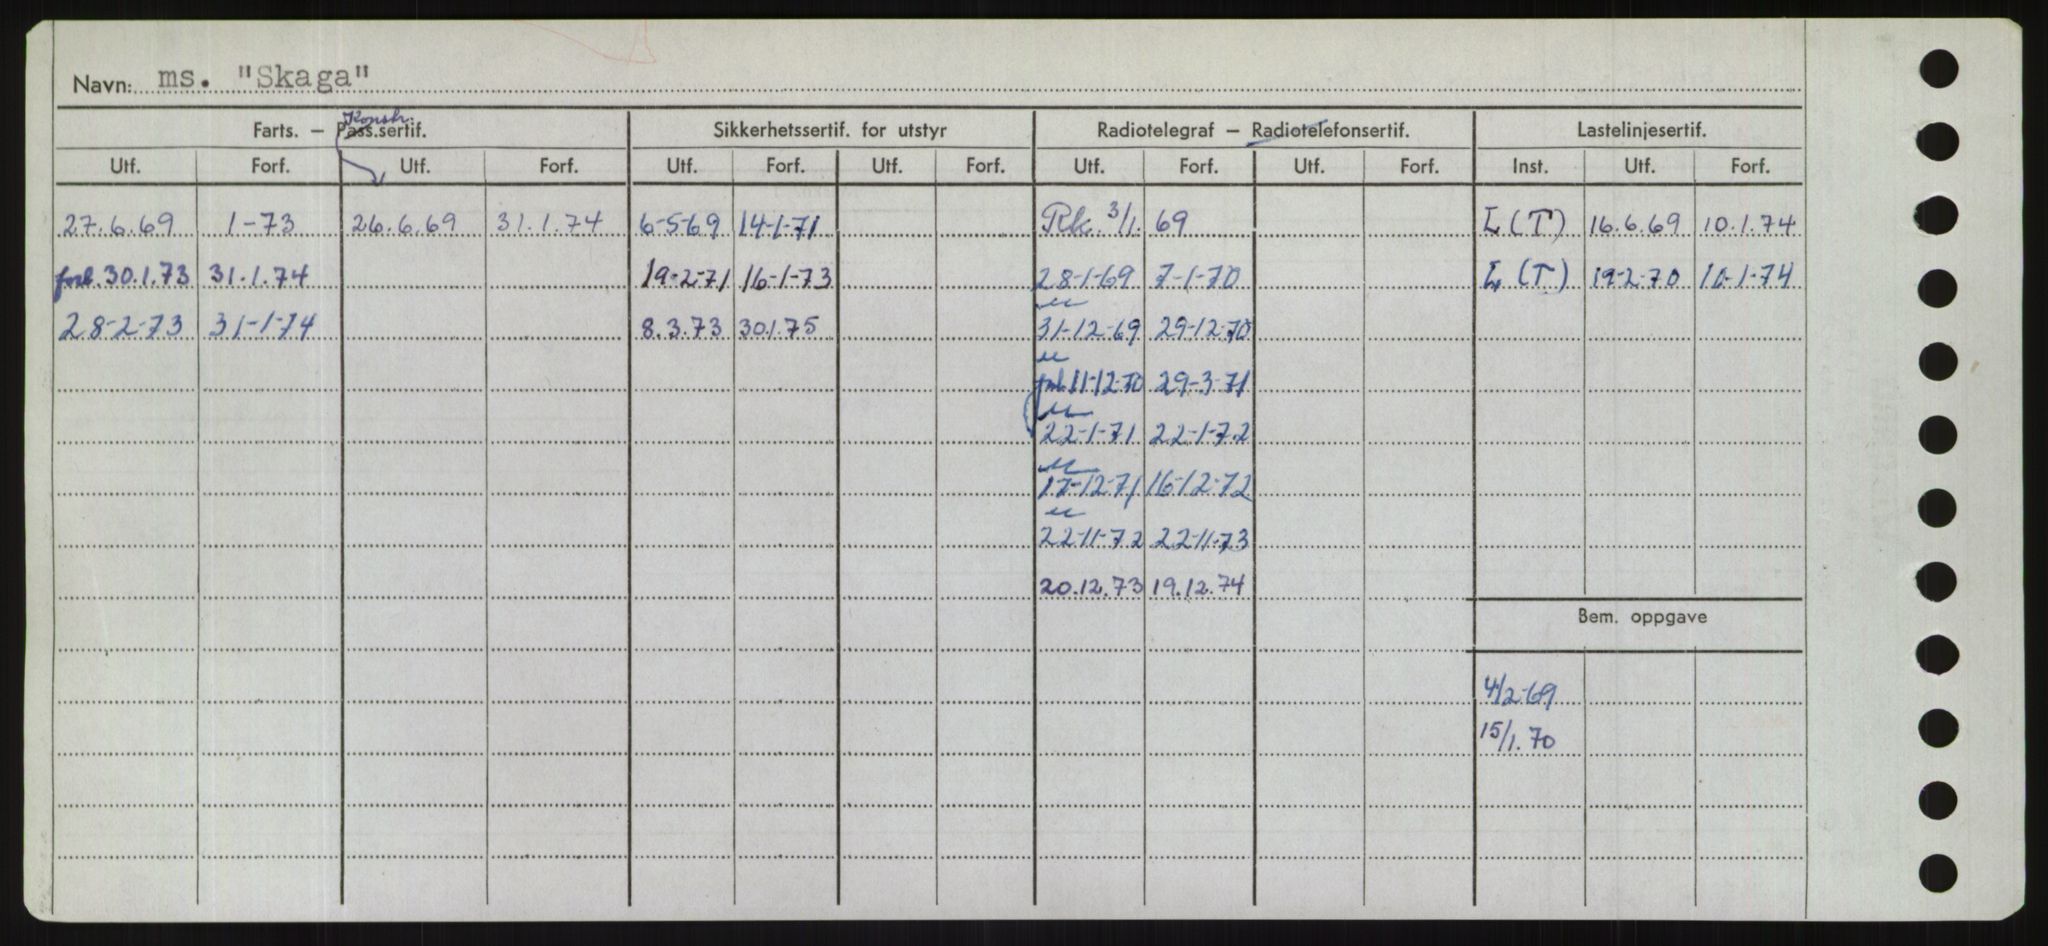 Navn: ms. "Skaga"
Farts. – Pass.sertif. Konstr. Sikkerhetssertif. for utstyr Radiotelegraf – Radiotelefonsertif. Lastelinjesertif.
Utf. Forf. Utf. Forf. Utf. Forf. Utf. Forf. Utf. Forf. Utf. Forf. Inst. Utf. Forf.
27.6.69 1-73 26.6.69 31.1.74 6-5-69 14-1-71 Rk. 3/1. 69 L(T) 16.6.69 10.1.74
forl. 30.1.73 31.1.74 19-2-71 16-1-73 28-1-69 7-1-70 L(T) 19-2-70 10-1-74
28-2-73 31-1-74 8.3.73 30.1.75 31-12-69 29-12-70
forl. 11-12-70 29-3-71
22-1-71 22-1-72
17-12-71 16-12-72
22-11-72 22-11-73
20.12.73 19.12.74
Bem. oppgave
4/2-69
15/1.70